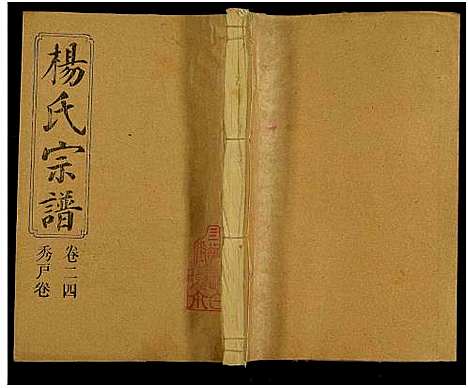 楊氏宗譜
卷二四
秀戶卷